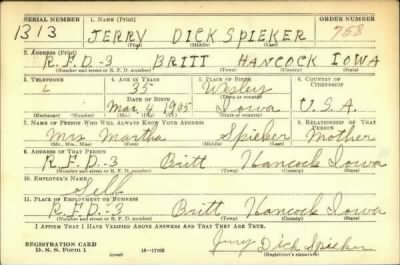 SERIAL NUMBER 1. NAME (Print) ORDER NUMBER
1313 JERRY DICK SPIEKER 758
(First) (Middle) (Last)
2. ADDRESS (Print)
R.F.D.-3 BRITT HANCOCK IOWA
(Number and street or R. F. D. number) (Town) (County) (State)
3. TELEPHONE 4. AGE IN YEARS 5. PLACE OF BIRTH 6. COUNTRY OF CITIZENSHIP
35 Wesley
DATE OF BIRTH (Town or county)
Mar 4 1905 Iowa U.S.A.
(Exchange) (Number) (Mo.) (Day) (Yr.) (State or country)
7. NAME OF PERSON WHO WILL ALWAYS KNOW YOUR ADDRESS 8. RELATIONSHIP OF THAT PERSON
Mrs Martha Spieker Mother
(Mr., Mrs., Miss) (First) (Middle) (Last)
9. ADDRESS OF THAT PERSON
R.F.D.-3 Britt Hancock Iowa
(Number and street or R. F. D. number) (Town) (County) (State)
10. EMPLOYER'S NAME
Self
11. PLACE OF EMPLOYMENT OR BUSINESS
R.F.D.-3 Britt Hancock Iowa
(Number and street or R. F. D. number) (Town) (County) (State)
I AFFIRM THAT I HAVE VERIFIED ABOVE ANSWERS AND THAT THEY ARE TRUE.
REGISTRATION CARD Jerry Dick Spieker
D. S. S. Form 1 (over) (Registrant's signature)